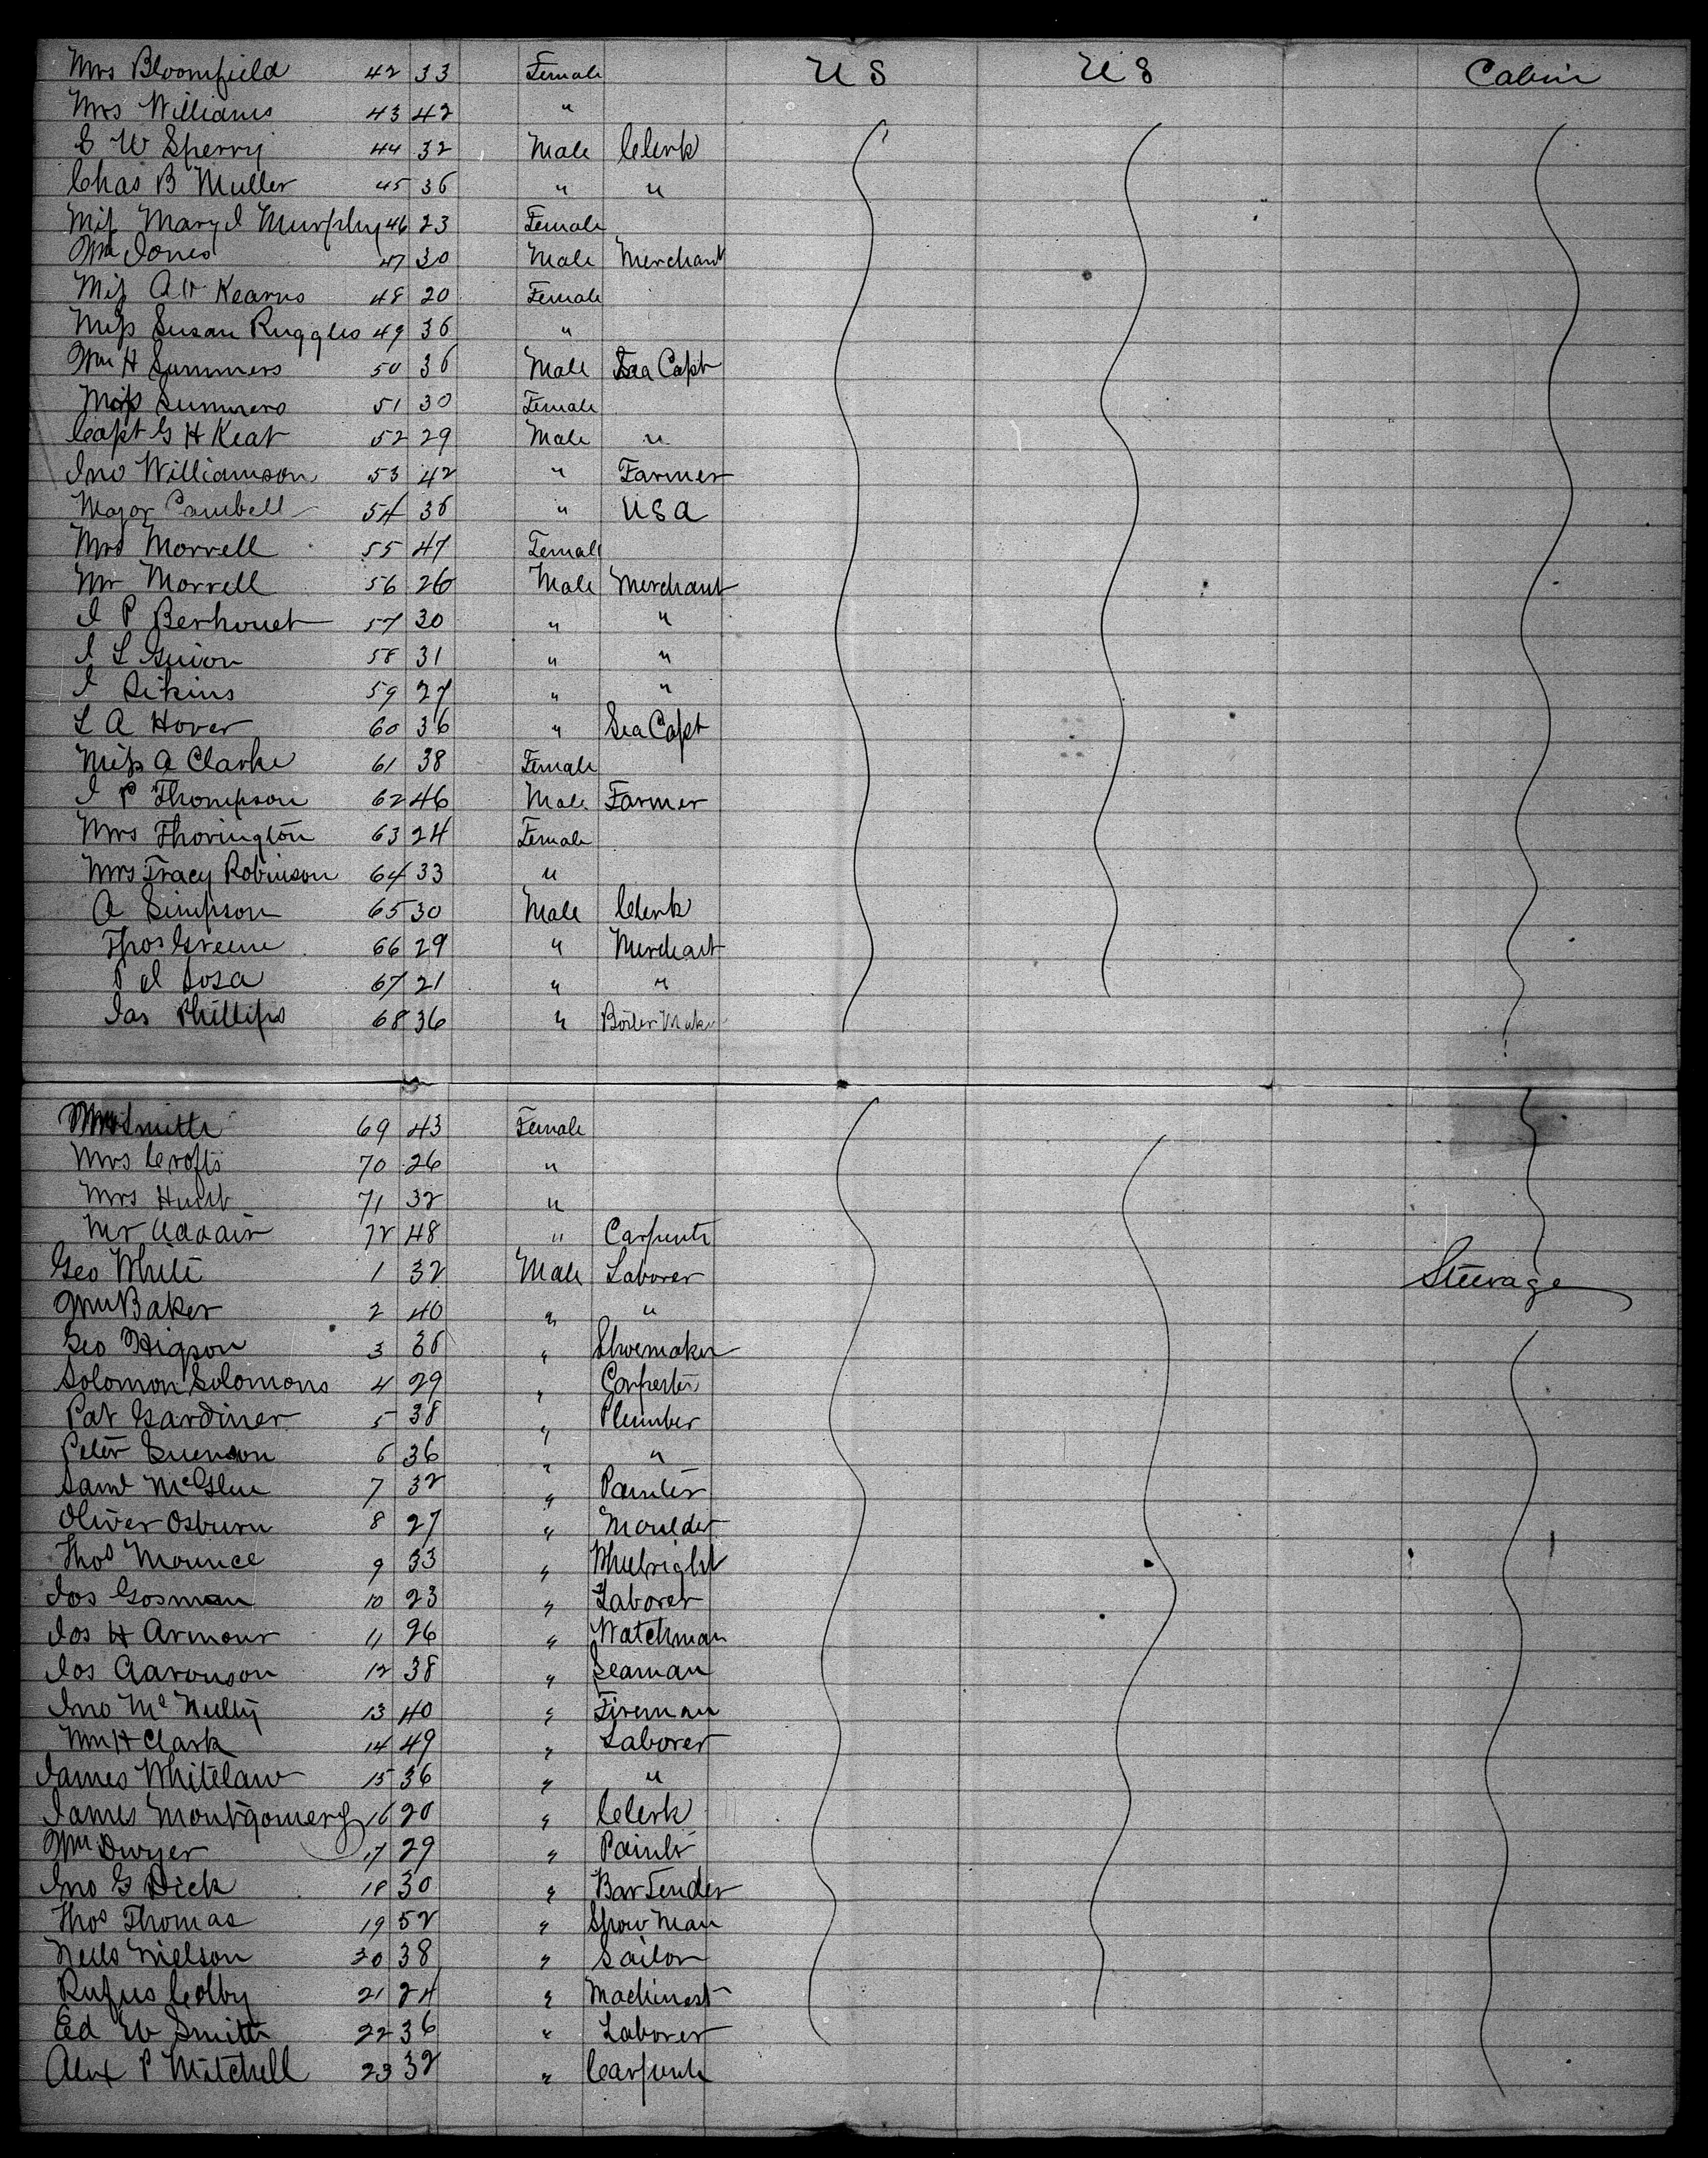 Mrs Bloomfield 42 33 Female U S U S Cabin
Mrs Williams 43 42 "
E W Sperry 44 32 Male Clerk
Chas B Muller 45 36 " "
Miss Mary I Murphy 46 23 Female
Wm Jones 47 30 Male Merchant
Miss A V Kearns 48 20 Female
Miss Susan Ruggles 49 36 "
Wm H Summers 50 36 Male Sea Capt
Miss Summers 51 30 Female
Capt G H Keat 52 29 Male "
Jno Williamson 53 42 " Farmer
Major Cambell 54 36 " U S A
Mrs Morrell 55 47 Female
Mr Morrell 56 26 Male Merchant
J P Berhouet 57 30 " "
J L Guion 58 31 " "
J Sikins 59 27 " "
L A Hover 60 36 " Sea Capt
Miss A Clarke 61 38 Female
J P Thompson 62 46 Male Farmer
Mrs Thorington 63 24 Female
Mrs Tracy Robinson 64 33 "
A Simpson 65 30 Male Clerk
Thos Greene 66 29 " Merchant
P I Sosa 67 21 " "
Jas Phillips 68 36 " Boiler Maker
Smith 69 43 Female
Mrs Crofts 70 26 "
Mrs Hurst 71 32 "
Mr Adair 72 48 " Carpente
Geo White 1 32 Male Laborer Steerage
Wm Baker 2 40 " "
Geo Higson 3 36 " Shoemaker
Solomon Solomons 4 29 " Carpenter
Pat Gardiner 5 38 " Plumber
Peter Suenson 6 36 " "
Saml McGlue 7 32 " Painter
Oliver Osburn 8 27 " Moulder
Thos Mounce 9 33 " Wheelright
Jos Gosman 10 23 " Laborer
Jos H Armour 11 26 " Watchman
Jos Aaronson 12 38 " Seaman
Jno McNulty 13 40 " Fireman
Wm H Clark 14 49 " Laborer
James Whitelaw 15 36 " "
James Montgomery 16 20 " Clerk
Wm Dwyer 17 29 " Painter
Jno G Dick 18 30 " Bar Tender
Thos Thomas 19 52 " Show Man
Neils Nielson 20 38 " Sailor
Rufus Colby 21 24 " Machinest
Ed W Smith 22 36 " Laborer
Alex P Mitchell 23 32 " Carpente